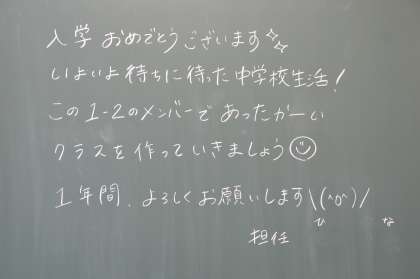 入学おめでとうございます✨
いよいよ待ちに待った中学校生活!
この1-2のメンバーであったかーい
クラスを作っていきましょう☺
1年間、よろしくお願いします\(^o^)/
ひ な
担任